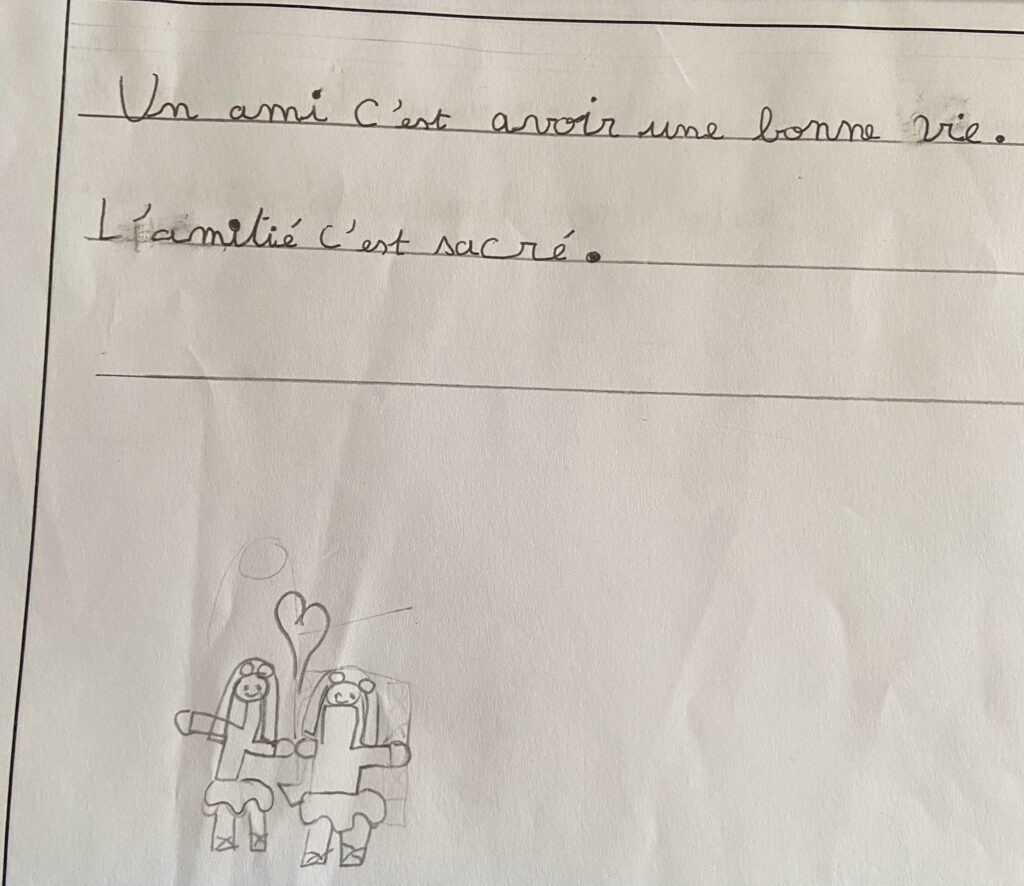 Un ami c'est avoir une bonne vie.
L'amitié c'est sacré.